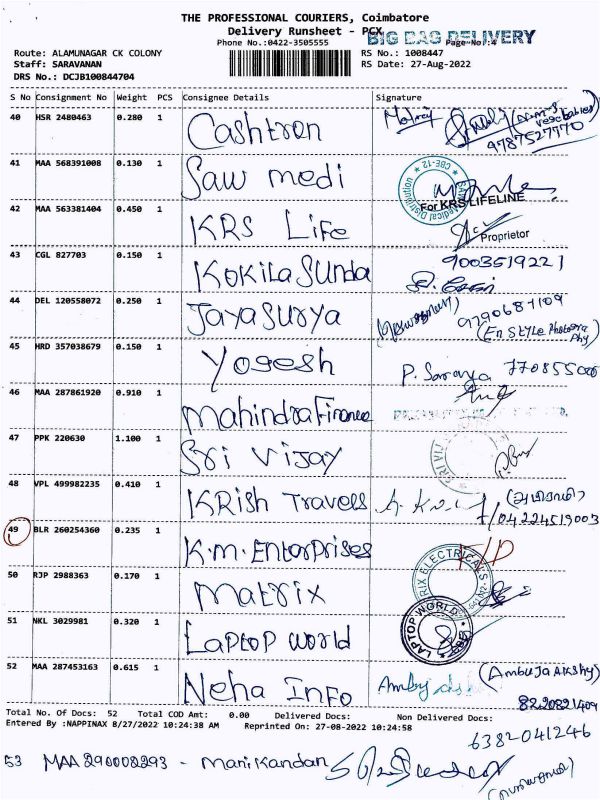 THE PROFESSIONAL COURIERS, Coimbatore
Delivery Runsheet - PCX BIG BAG DELIVERY
Phone No.:0422-3505555 Page No.:4
Route: ALAMUNAGAR CK COLONY RS No.: 1008447
Staff: SARAVANAN RS Date: 27-Aug-2022
DRS No.: DCJB100844704
S No Consignment No Weight PCS Consignee Details Signature
40 HSR 2480463 0.280 1 Cashtron
9787527770
41 MAA 568391008 0.130 1 Saw medi
42 MAA 563381404 0.450 1 KRS Life
For KRS LIFELINE
Proprietor
43 CGL 827703 0.150 1 Kokila Sunda 9003519221
44 DEL 120558072 0.250 1 Jayasurya 9290687109
(En Style Photogra
Phy)
45 HRD 357038679 0.150 1 Yogesh P. Saranya
46 MAA 287861920 0.910 1 Mahindra Finance
47 PPK 220630 1.100 1 Sri Vijay
48 VPL 499982235 0.410 1 KRish Travels
04224519003
49 BLR 260254360 0.235 1 K.M. Enterprises
50 RJP 2988363 0.170 1 Matrix
51 NKL 3029981 0.320 1 Laptop world
LAPTOP WORLD
52 MAA 287453163 0.615 1 Neha Info (Ambuja Akshy)
8220821409
Total No. Of Docs: 52 Total COD Amt: 0.00 Delivered Docs: Non Delivered Docs:
Entered By :NAPPINAX 8/27/2022 10:24:38 AM Reprinted On: 27-08-2022 10:24:58
6382041246
53 MAA 290008293 - Manikandan